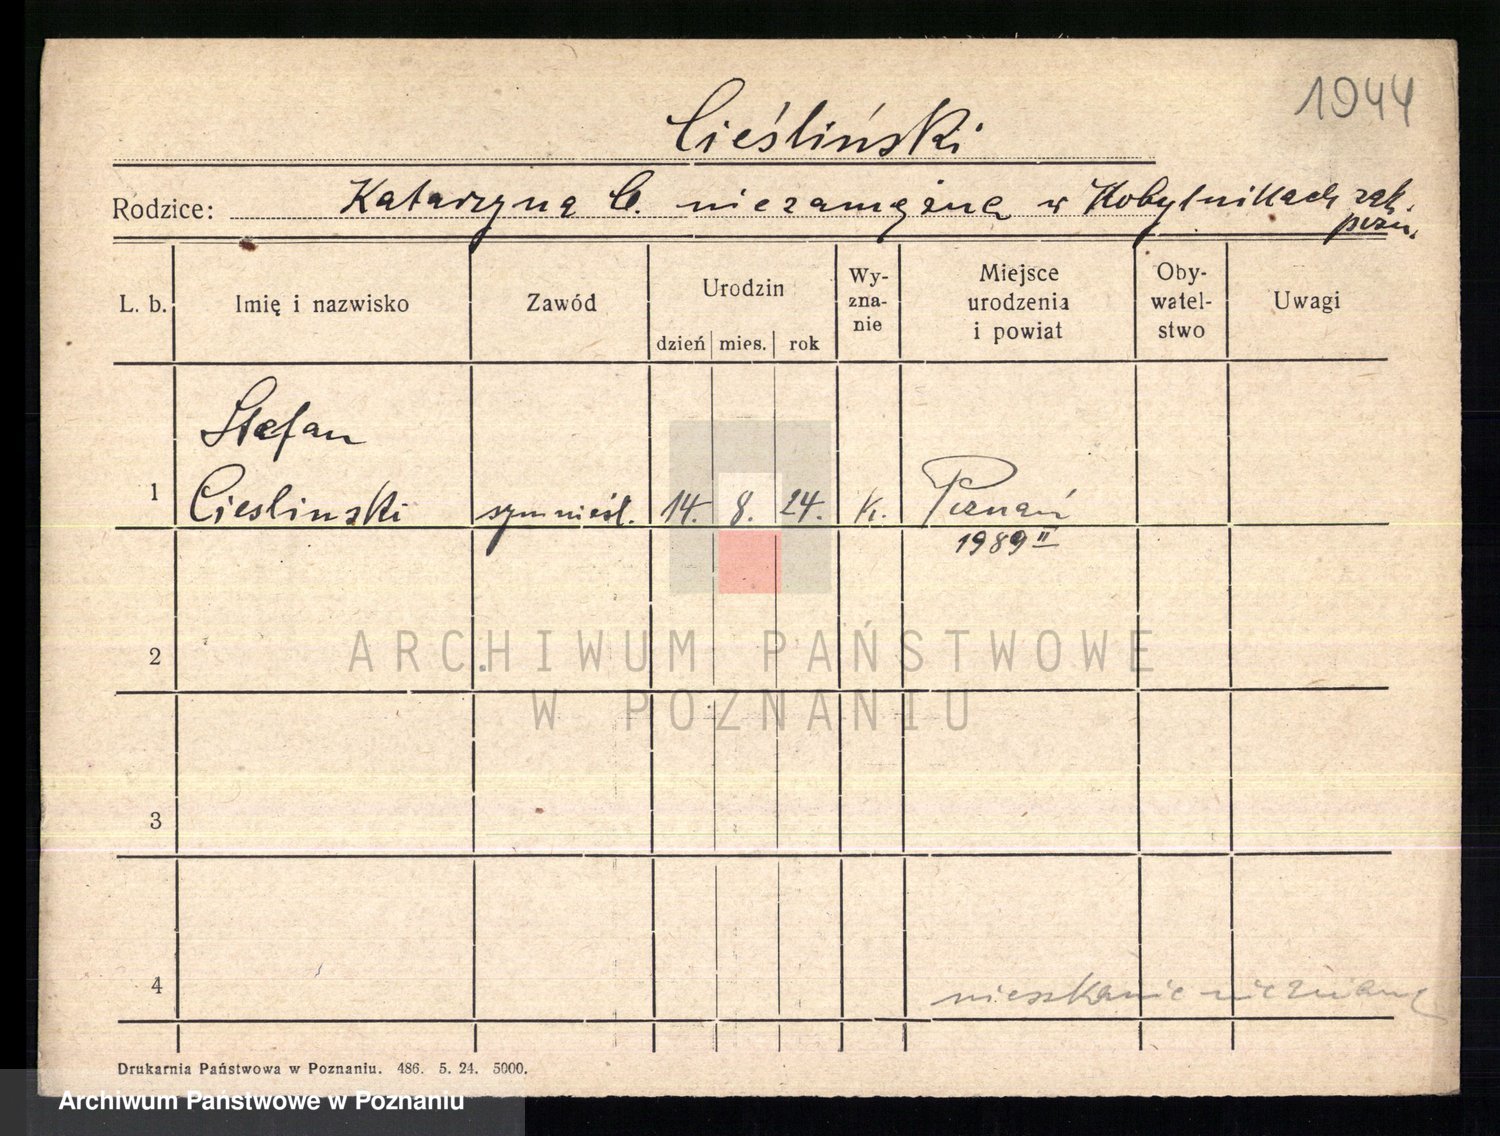 1944
Cieśliński
Rodzice: Katarzyna C. niezamężna w Kobylnikach
pozn.
L. b. Imię i nazwisko Zawód Urodzin dzień mies. rok Wy-zna-nie Miejsce urodzenia i powiat Oby-watel-stwo Uwagi
Stefan
1 Cieslinski 14. 8. 24. k. Poznań
1989 II
2
3
4 mieszkanie nieznane
Drukarnia Państwowa w Poznaniu. 486. 5. 24. 5000.
ARCHIWUM PAŃSTWOWE
W POZNANIU
Archiwum Państwowe w Poznaniu